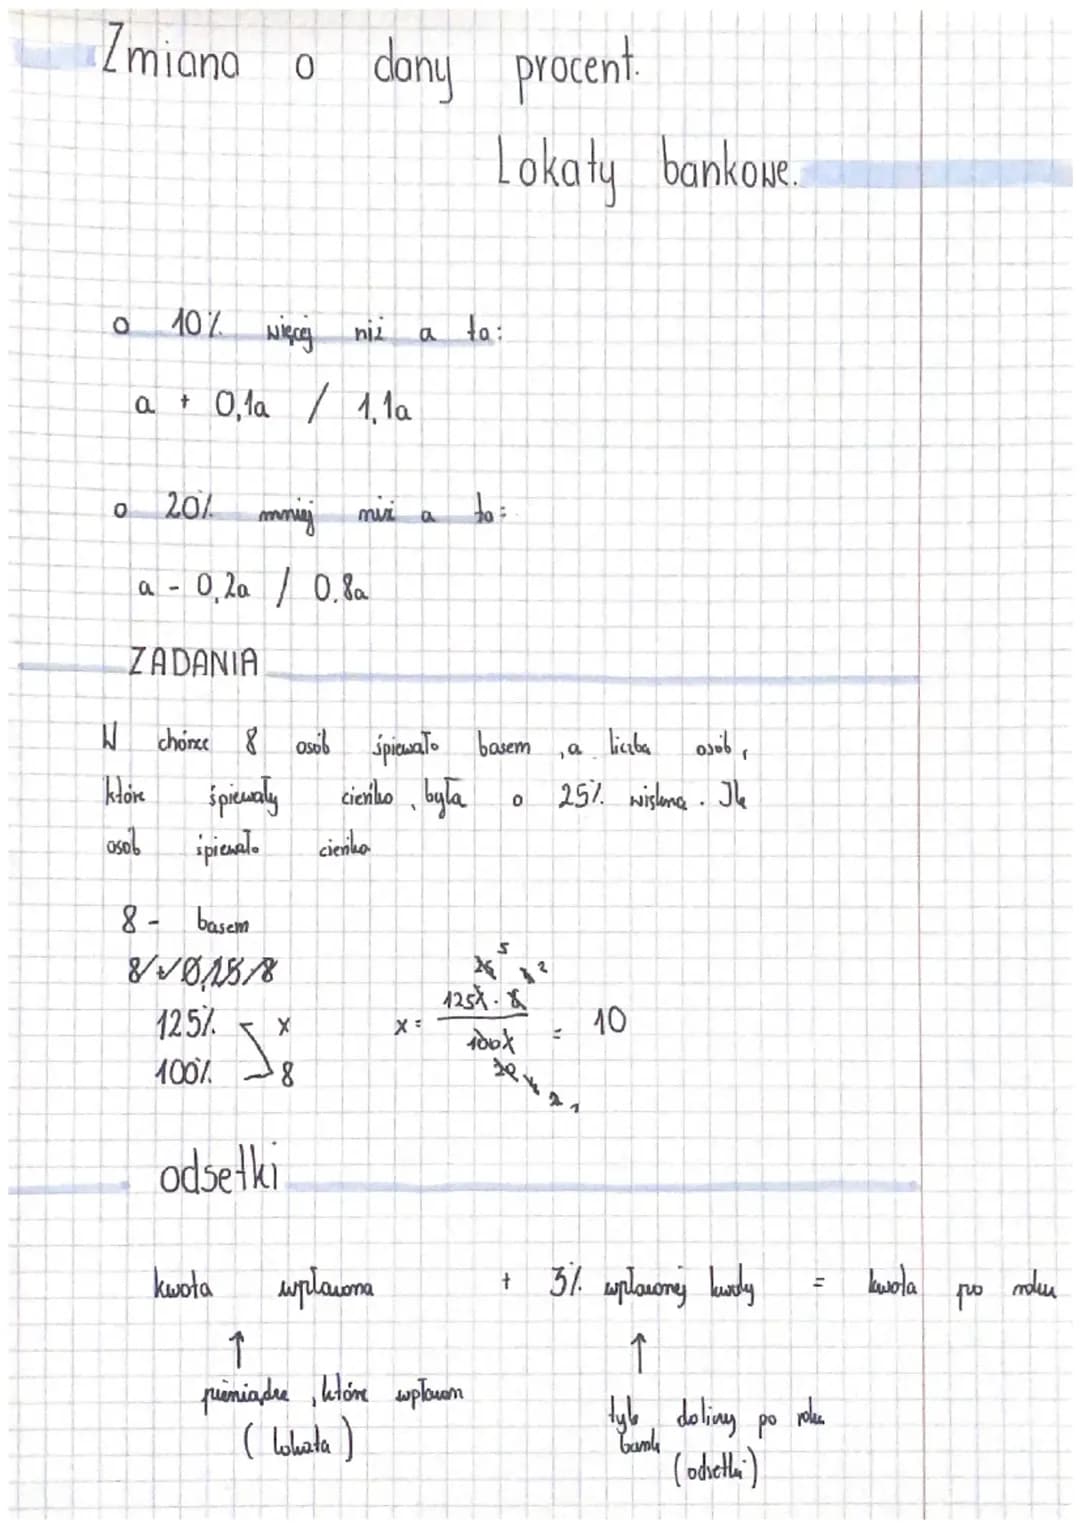 Zmiana o dany procent.
Lokaty bankowe.
o 10% więcej niż a to:
a + 0,1a / 1,1a
o 20% mniej niż a to:
a - 0,2a / 0,8a
ZADANIA
W chórze 8 osób śpiewało basem, a liczba osób,
które śpiewały cienko, była o 25% większa. Ile
osób śpiewało cienko
8 - basem
125% x
100% 8
x = 125% · 8 / 100% = 10
odsetki
kwota wpłacona + 3% wpłaconej kwoty = kwota po roku
↑ ↑
pieniądze, które wpłacam
(lokata)
tyle doliczy po roku
bank
(odsetki)